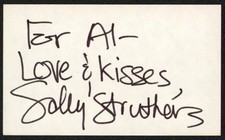 For Al-
Love & Kisses
Sally Struthers